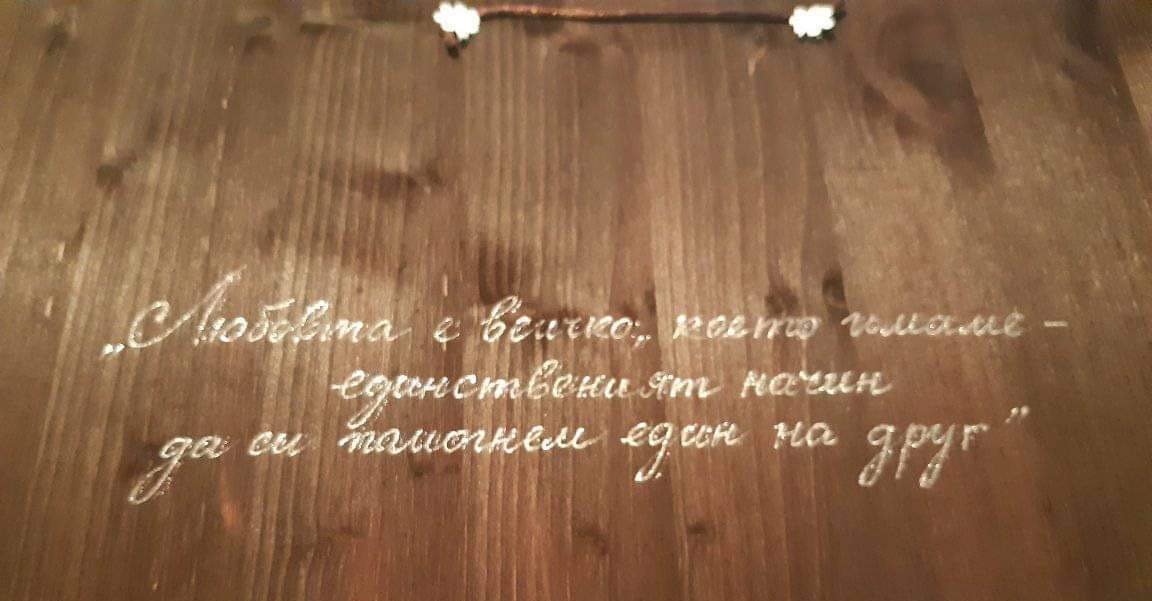 „Любовта е всичко, което имаме –
единственият начин
да си помогнем един на друг”